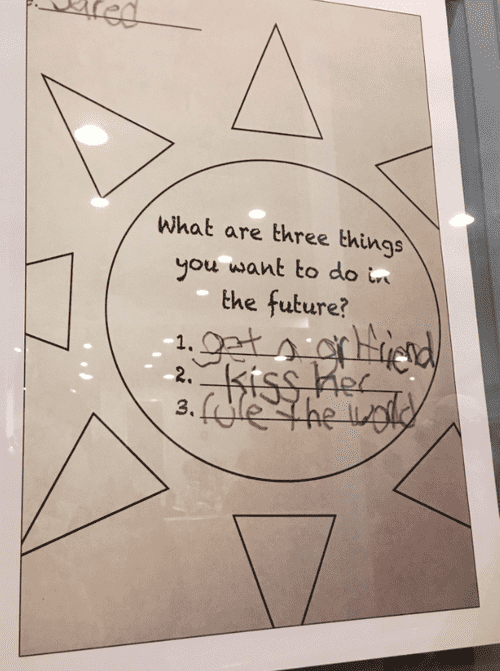 Jared
What are three things
you want to do in
the future?
1. get a girlfriend
2. kiss her
3. rule the world